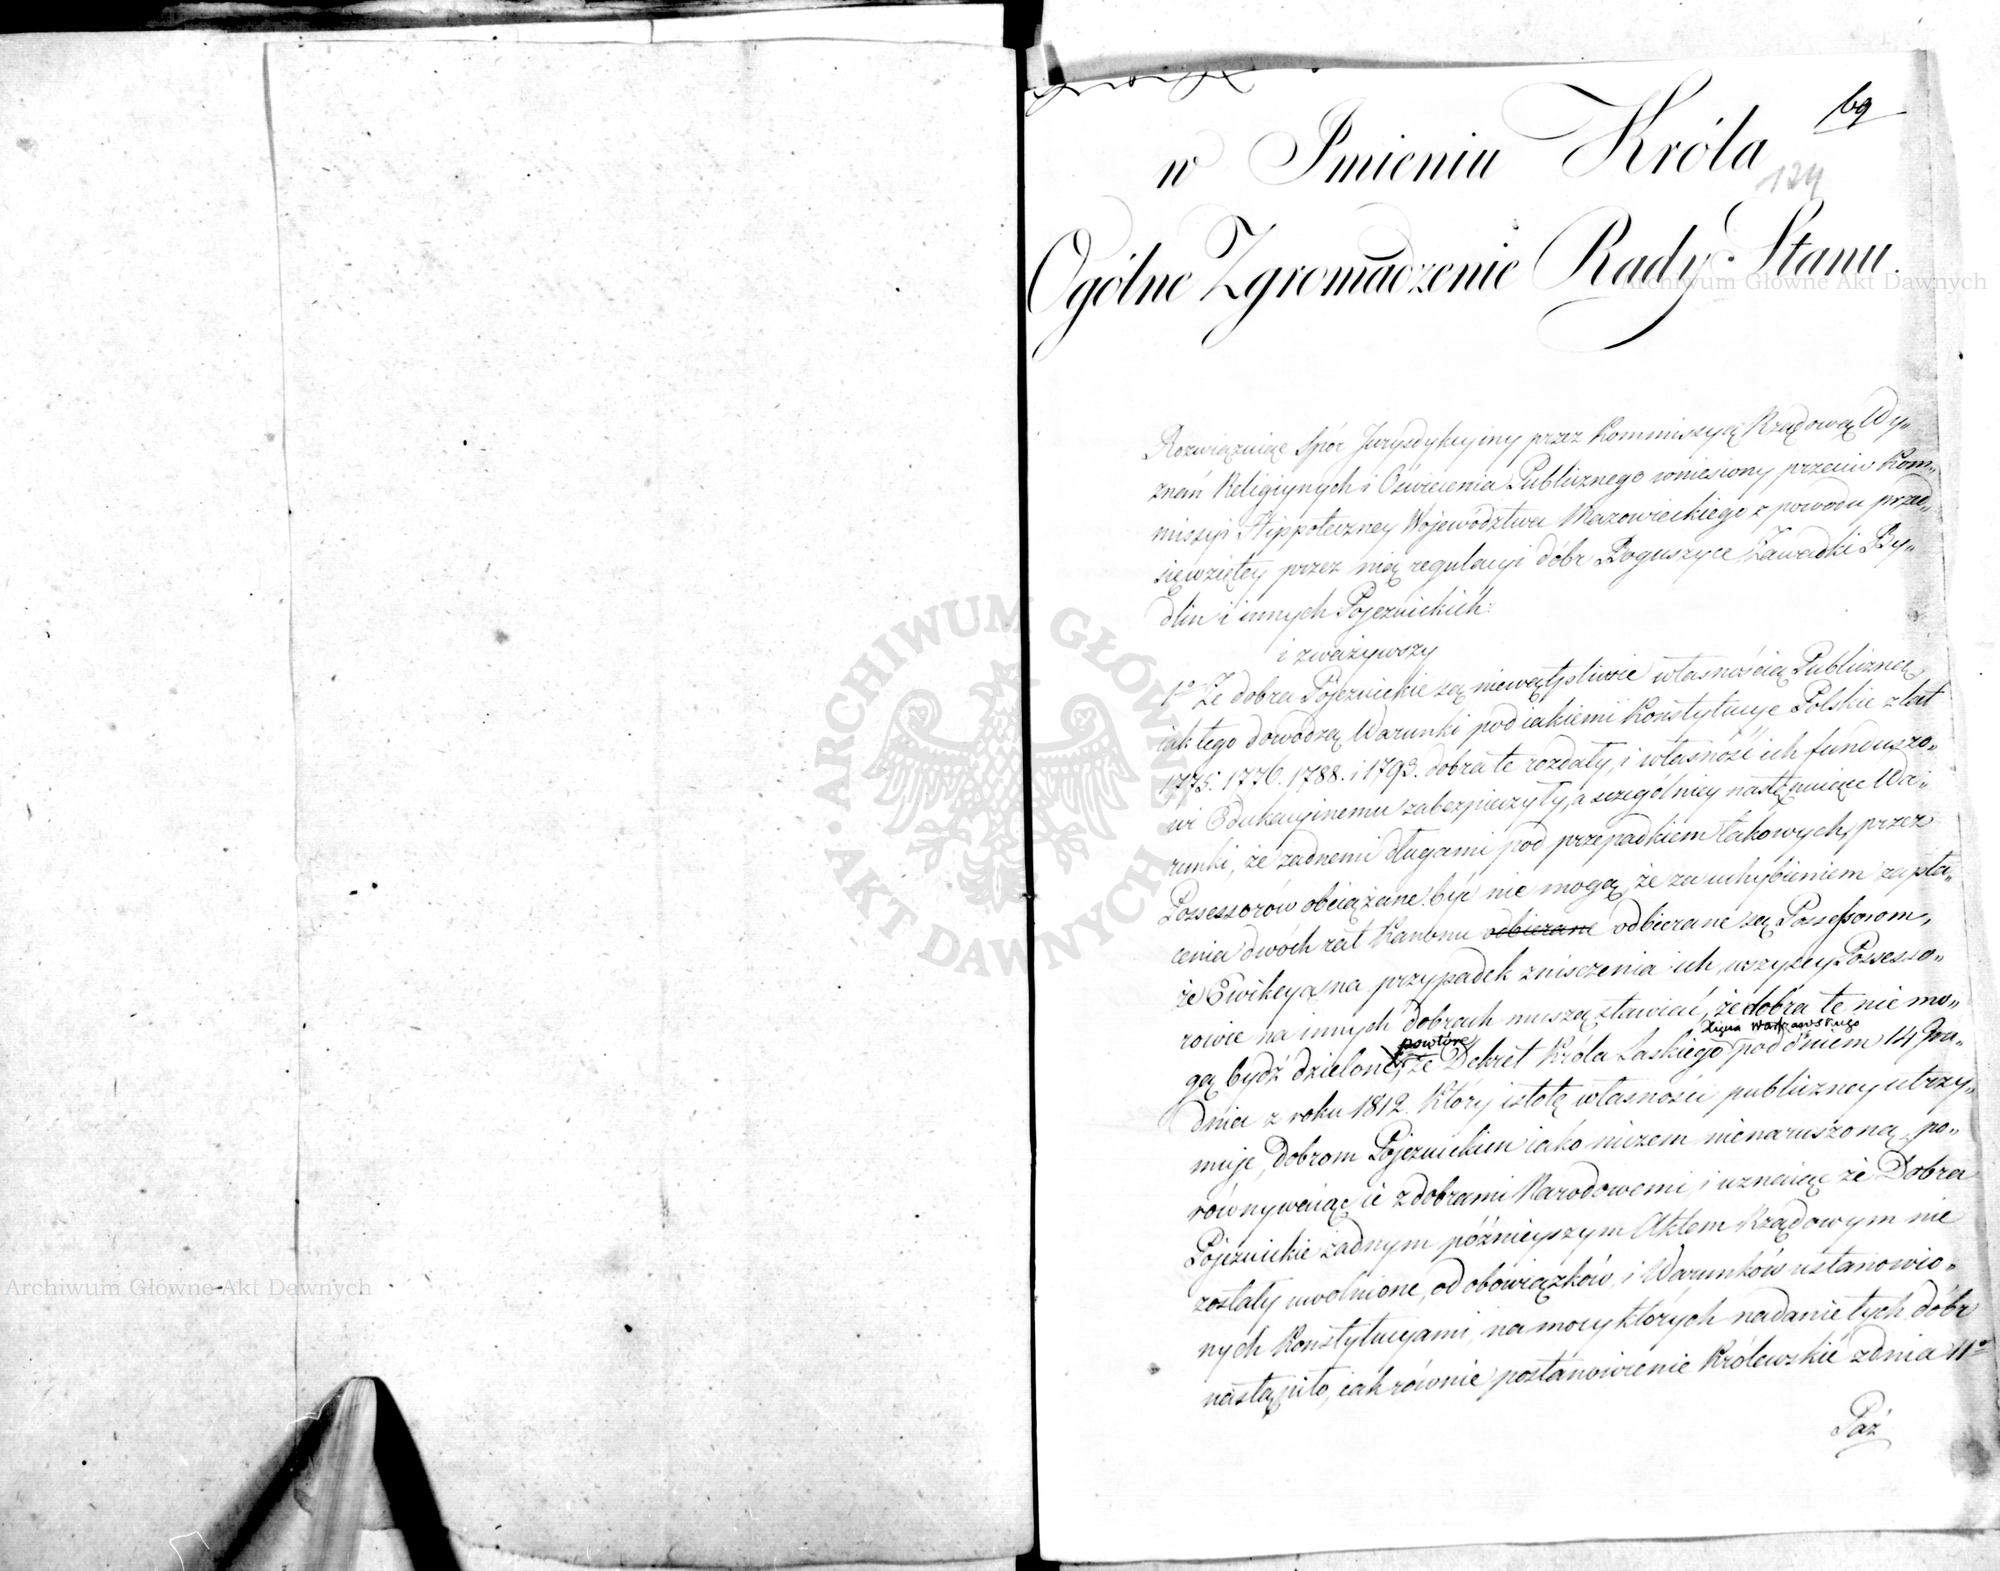 69
w Imieniu Króla
124
Ogólne Zgromadzenie Rady Stanu.
Rozwiązuiąc Spór Jurysdykcyiny przez Kommissyią Rządową Wy„
znań Religiynych i Oświecenia Publicznego wniesiony przeciw Kom„
missyi Hippoteczney Województwa Mazowieckiego z powodu przed„
sięwziętey przez nią regulacyi dóbr Boguszyce Zawadki By„
dlin i innych Pojezuickich:
i zważywszy
1o Że dobra Pojezuickie są niewątpliwie własnością Publiczną
iak tego dowodzą Warunki pod iakiemi Konstytucye Polskie z lat
1775. 1776. 1788. i 1793. dobra te rozdały, i własność ich funduszo„
wi Edukacyinemu zabezpieczyły, a szczególniey następuiące Wa„
runki, że żadnemi długami pod przepadkiem takowych, przez
Possessorów obciążane być nie mogą, że za uchybieniem zapła„
cenia dwóch rat Kanonu odbierane odbierane są Possessorom,
że Ewikcyą na przypadek zniszczenia ich wszyscy Possesso„
rowie na innych dobrach muszą stawiać, że dobra te nie mo„
gą bydź dzielone, powtóre że Dekret Króla Saskiego Xięcia Warszawskiego pod dniem 14 Gru„
dnia z roku 1812. Który istotę własności publiczney utrzy„
muje, dobrom Pojezuickim iako niczem nienaruszoną, po„
równywaiąc ie z dobrami Narodowemi, i uznaiąc że Dobra
Pojezuickie żadnym późnieyszym Aktem Rządowym nie
zostały uwolnione, od obowiązków, i Warunków ustanowio„
nych Konstytucyami, na mocy których nadanie tych dóbr
nastąpiło, iak równie postanowienie Królewskie z dnia 11o
Paź
Archiwum Główne Akt Dawnych
Archiwum Główne Akt Dawnych
ARCHIWUM GŁÓWNE AKT DAWNYCH